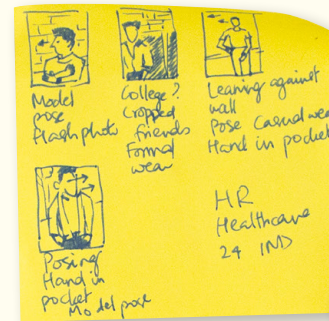 Model
pose
Flash photo
College?
Cropped
friends
Formal
wear
Leaning against
wall
Pose Casual wear
Hand in pocket
Posing
Hand in
pocket
Model pose
HR
Healthcare
24 IND